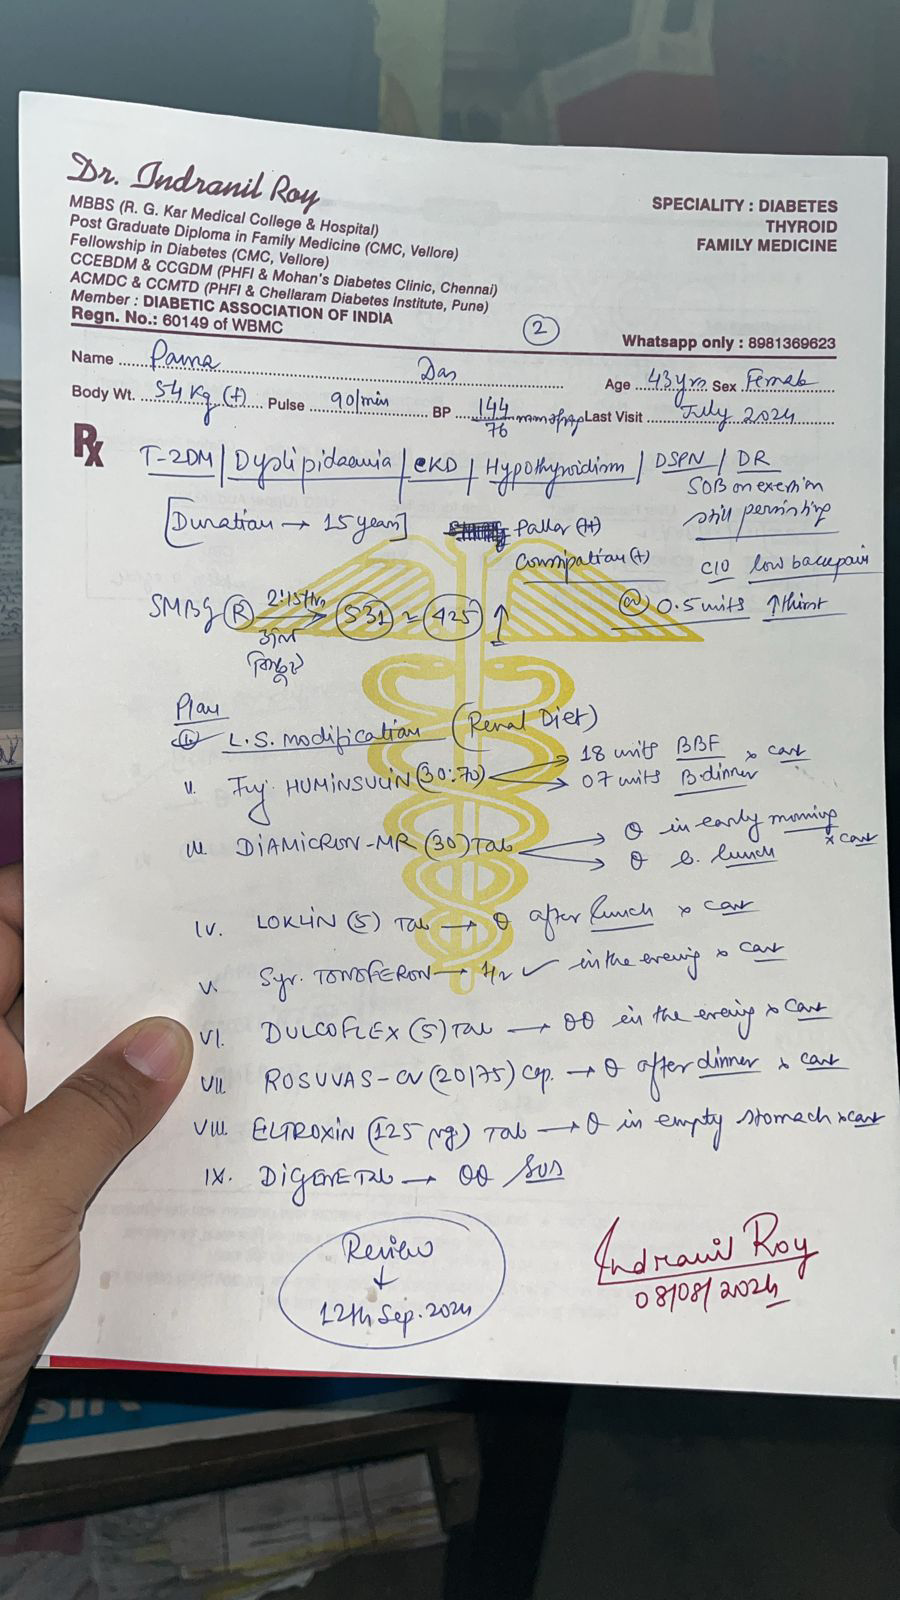 Dr. Indranil Roy
MBBS (R. G. Kar Medical College & Hospital)
Post Graduate Diploma in Family Medicine (CMC, Vellore)
Fellowship in Diabetes (CMC, Vellore)
CCEBDM & CCGDM (PHFI & Mohan's Diabetes Clinic, Chennai)
ACMDC & CCMTD (PHFI & Chellaram Diabetes Institute, Pune)
Member : DIABETIC ASSOCIATION OF INDIA
Regn. No.: 60149 of WBMC
SPECIALITY : DIABETES
THYROID
FAMILY MEDICINE
2
Whatsapp only : 8981369623
Name Das Age 43yrs Sex Female
Body Wt. 54 Kg (+) Pulse 90/min BP 144/76 mmofHg Last Visit July 2024
Rx
T-2DM / Dyslipidaemia / CKD / Hypothyroidism / DSPN / DR
SOB on exertion
still persisting
[Duration → 15 years] Pallor (+)
Constipation (+)
C/O low back pain
SMBG (R) 2:15Hrs → 531 ≈ 425 ↑
@ 0.5 units ↑thirst
Plan
i. L.S. modification (Renal Diet)
ii. Inj HUMINSULIN (30:70) → 18 units BBF x cont
→ 07 units B.dinner
iii. DIAMICRON-MR (30) Tab → θ in early morning x cont
→ θ b. lunch
iv. (5) Tab → θ after lunch x cont
v. Syr. TONOFERON → 1/2 ✓ in the evening x cont
VI. DULCOFLEX (5) Tab → θθ in the evening x cont
VII. ROSUVAS-CV (20/75) Cap. → θ after dinner x cont
VIII. ELTROXIN (125 µg) Tab → θ in empty stomach x cont
IX. DIGENE Tab → θθ SOS
Review
↓
12th Sep. 2024
Indranil Roy
08/08/2024